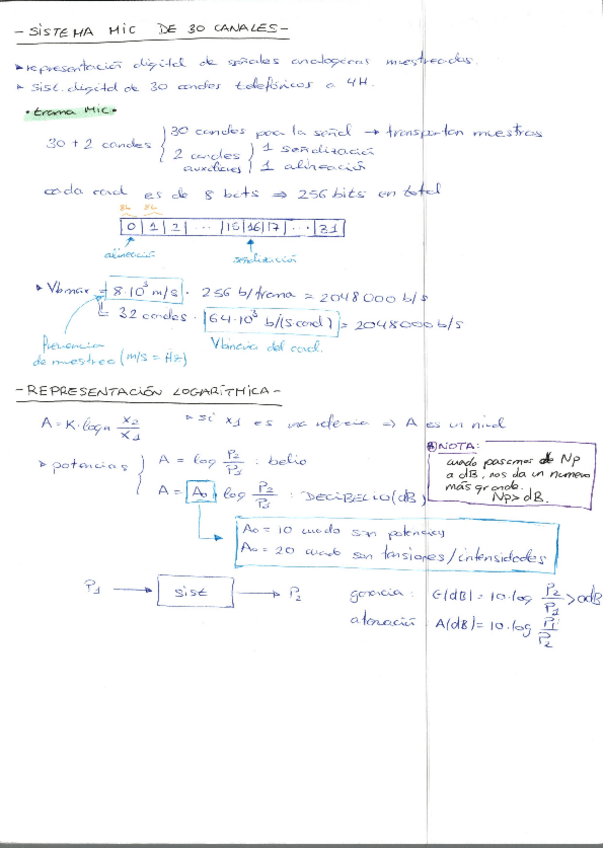 - SISTEMA MIC DE 30 CANALES -
▸ representación digital de señales analógicas muestreadas.
▸ sist. digital de 30 canales telefónicos a 4H.
• trama MIC •
30 + 2 canales { 30 canales para la señal → transportan muestras
2 canales auxiliares { 1 señalización
1 alineación
cada canal es de 8 bits ⇒ 256 bits en total
8b 8b
0 | 1 | 2 | ... | 15 | 16 | 17 | ... | 31
alineación señalización
▸ Vbmax = 8·10³ m/s · 256 b/trama = 2048000 b/s
= 32 canales · 64·10³ b/(s canal) = 2048000 b/s
Frecuencia de muestreo (m/s = Hz)
Vbinaria del canal.
- REPRESENTACIÓN LOGARÍTMICA -
A = K · logₙ x₂/x₁ ▸ si x₁ es una referencia ⇒ A es un nivel
▸ potencias { A = log P₂/P₁ : belio
A = A₀ · log P₂/P₁ : DECIBELIO (dB)
NOTA:
cuando pasamos de Np
a dB, nos da un número
más grande.
Np > dB.
A₀ = 10 cuando son potencias
A₀ = 20 cuando son tensiones/intensidades
P₁ → sist → P₂
ganancia : G(dB) = 10·log P₂/P₁ > 0dB
atenuación : A(dB) = 10·log P₁/P₂